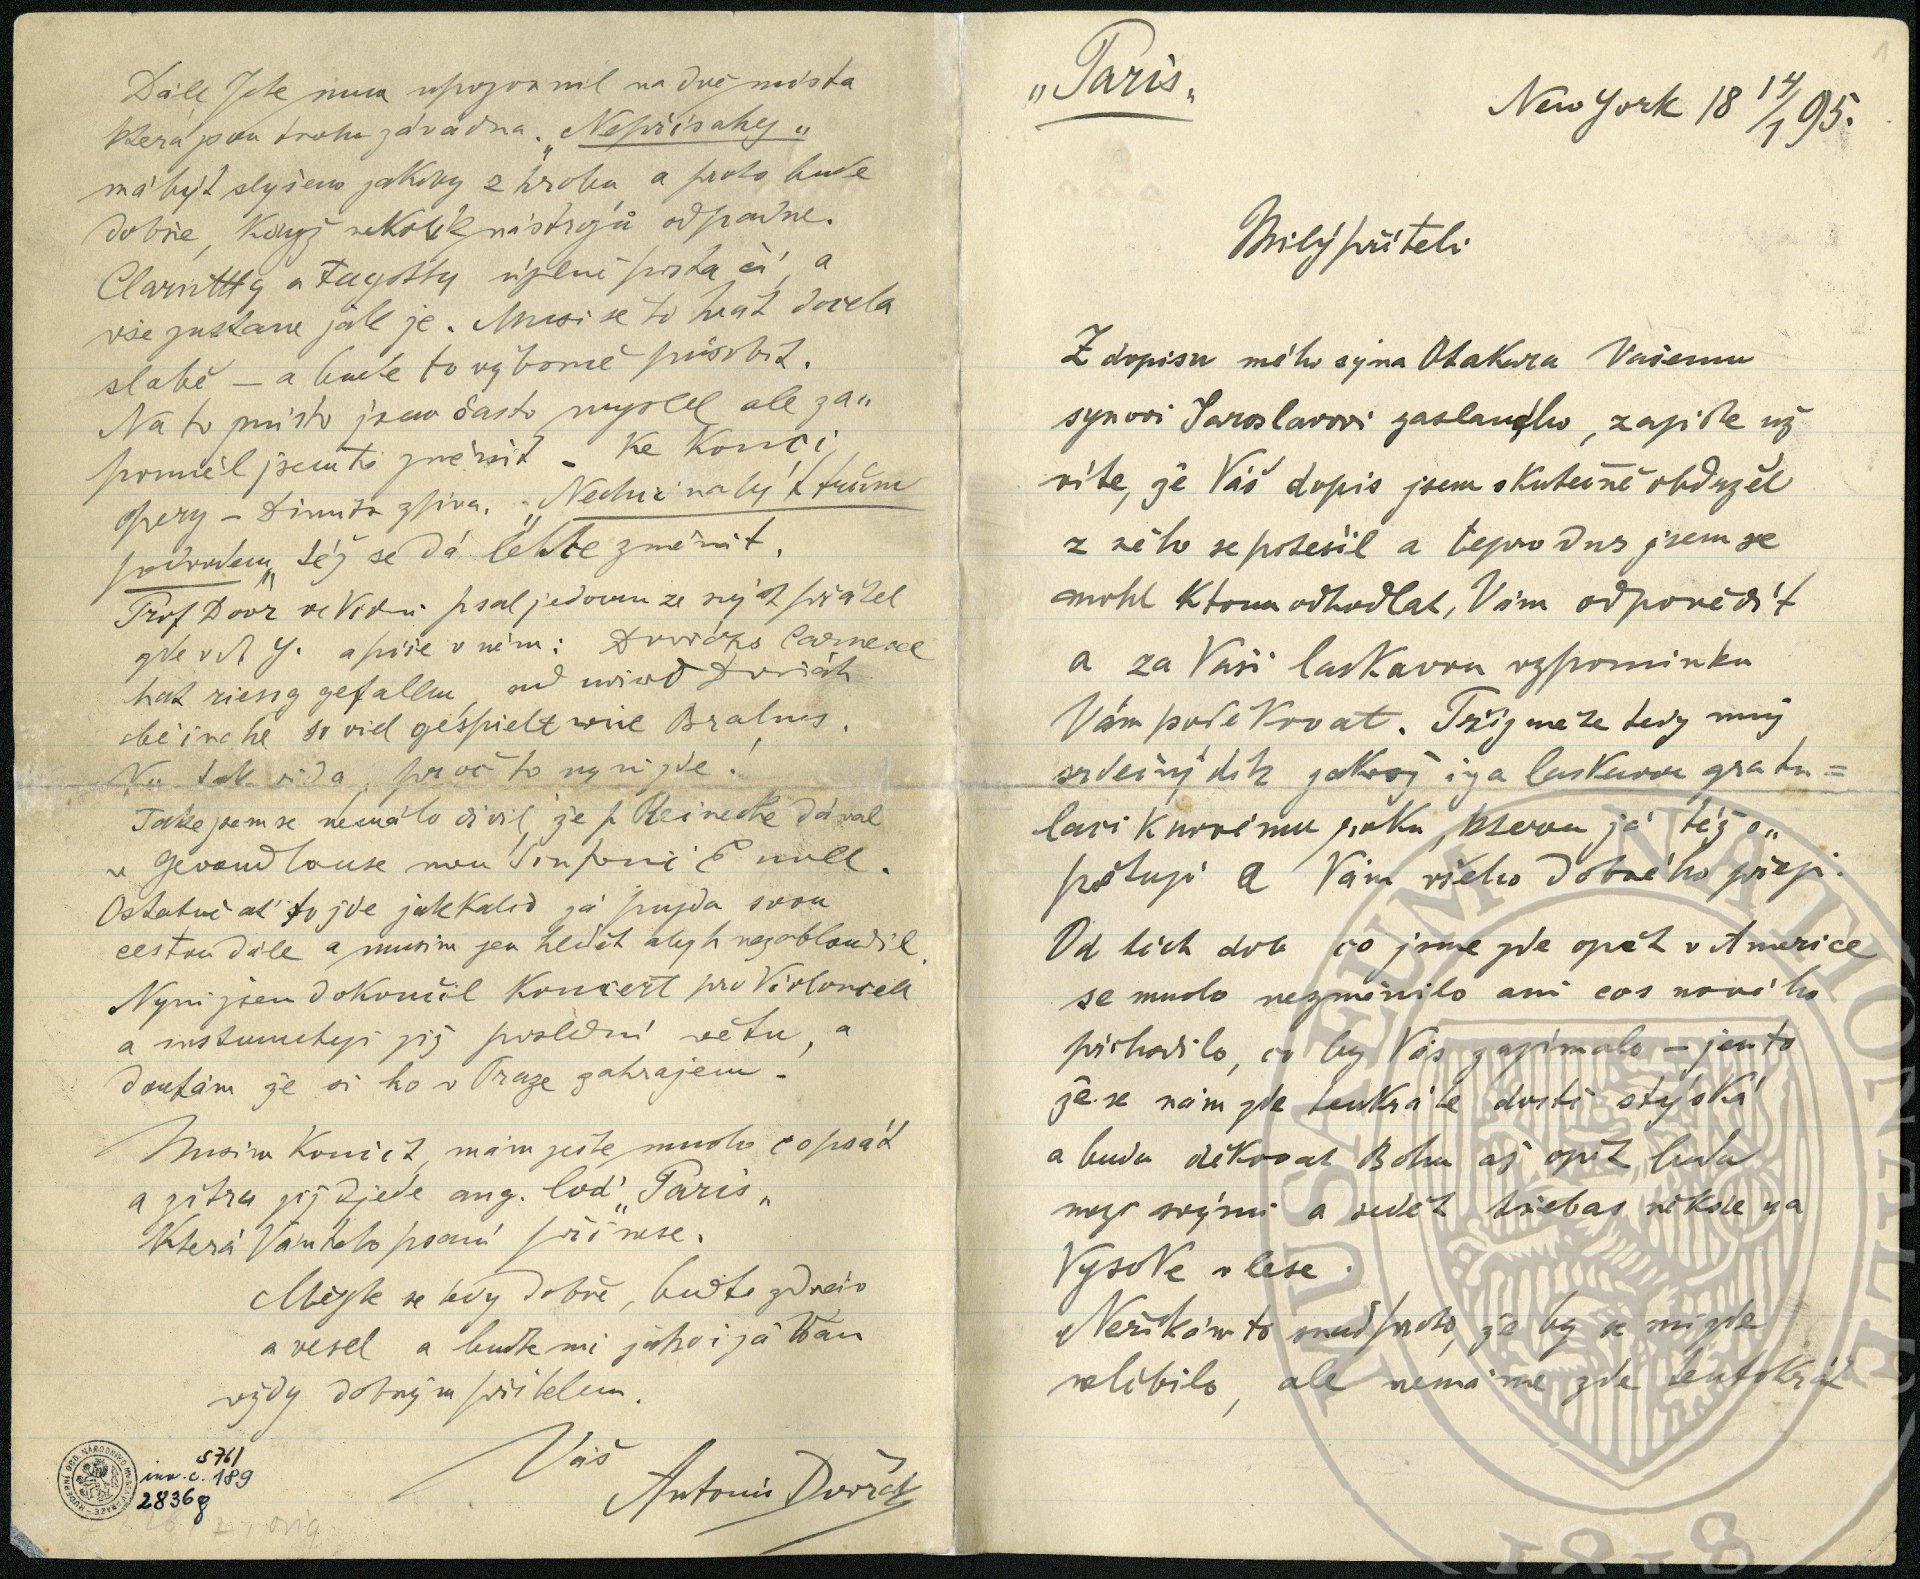 „Paris„
New York 18 14/1 95.
Milý příteli
Z dopisu mého syna Otakura Vašemu
synovi Jaroslavovi zaslaného, zajiste už
víte, že Váš dopis jsem skutečně obdržel
z něho se potešil a teprv dnes jsem se
mohl k tomu odhodlat, Vám odpovědít
a za Vaši laskavou vzpomínku
Vám poděkovat. Přijmete tedy můj
srdečný dík jakož i za laskavou gratu=
laci k novému roku, kterou já též o„
pětuji a Vám všeho dobrého přeji.
Od těch dob co jsme zde opět v Americe
se mnoho nezměnilo ani cos nového
přihodilo, co by Vás zajímalo – jen to
že se nám zde tenkráte dosti stýská
a budu děkovat Bohu až opět budu
mezi svými a sedět třebas někde na
Vysoke v lese.
Neřikám to snad proto, že by se mi zde
nelíbilo, ale nemáme zde tentokrát
Dále jste mne upozornil na dvě místa
která jsou trohu závadna. „Nepřísahej„
má být slyšeno jakoby z hrobu a proto bude
dobře, když nekolik nástrojů odpadne.
Clarinetty a Fagotty úplně postačí, a
vše zustane jak je. Musi se to hrát docela
slabě – a bude to výborně působit.
Na to místo jsem často myslel ale za„
pomněl jsem to změnit – ke konci
opery – Dimitr zpíva. „Nechci nabýt trůnu
podvodem„ též se dá lehce změnit.
Prof Door ve Vídni psal jednomu ze svých přátel
zde v N Y. a píše v něm: Dvořáks Carneval
hat riesig gefallen und wird Dvořák
beinahe so viel gespielt wie Brahms.
Nu tak vida, proč to nyní jde!
Take jsem se nemálo divil, že p Reinecke dával
v Gewandhause mou Sinfonii E moll.
Ostatně ať to jde jakkoliv já pujdu svou
cestou dále a musím jen hledět abych nezabloudil.
Nyní jsem dokončil Koncert pro Violoncell
a instumetuji již poslední větu, a
doufám že si ho v Praze zahrajem –
Musím končit, mám ještě mnoho co psát
a zítra již odjede ang. loď „Paris„
která Vám toto psaní přinese.
Mějte se tedy dobře, buďte zdráv
a vesel a buďte mi jako i já Vám
vždy dobrým přítelem.
Váš
Antonín Dvořák
HUDEBNÍ ODD. NÁRODNÍHO MUSEA V PRAZE
S 76/
inv. č. 189
2836 g
MUSEUM NATIONALE
1818
1